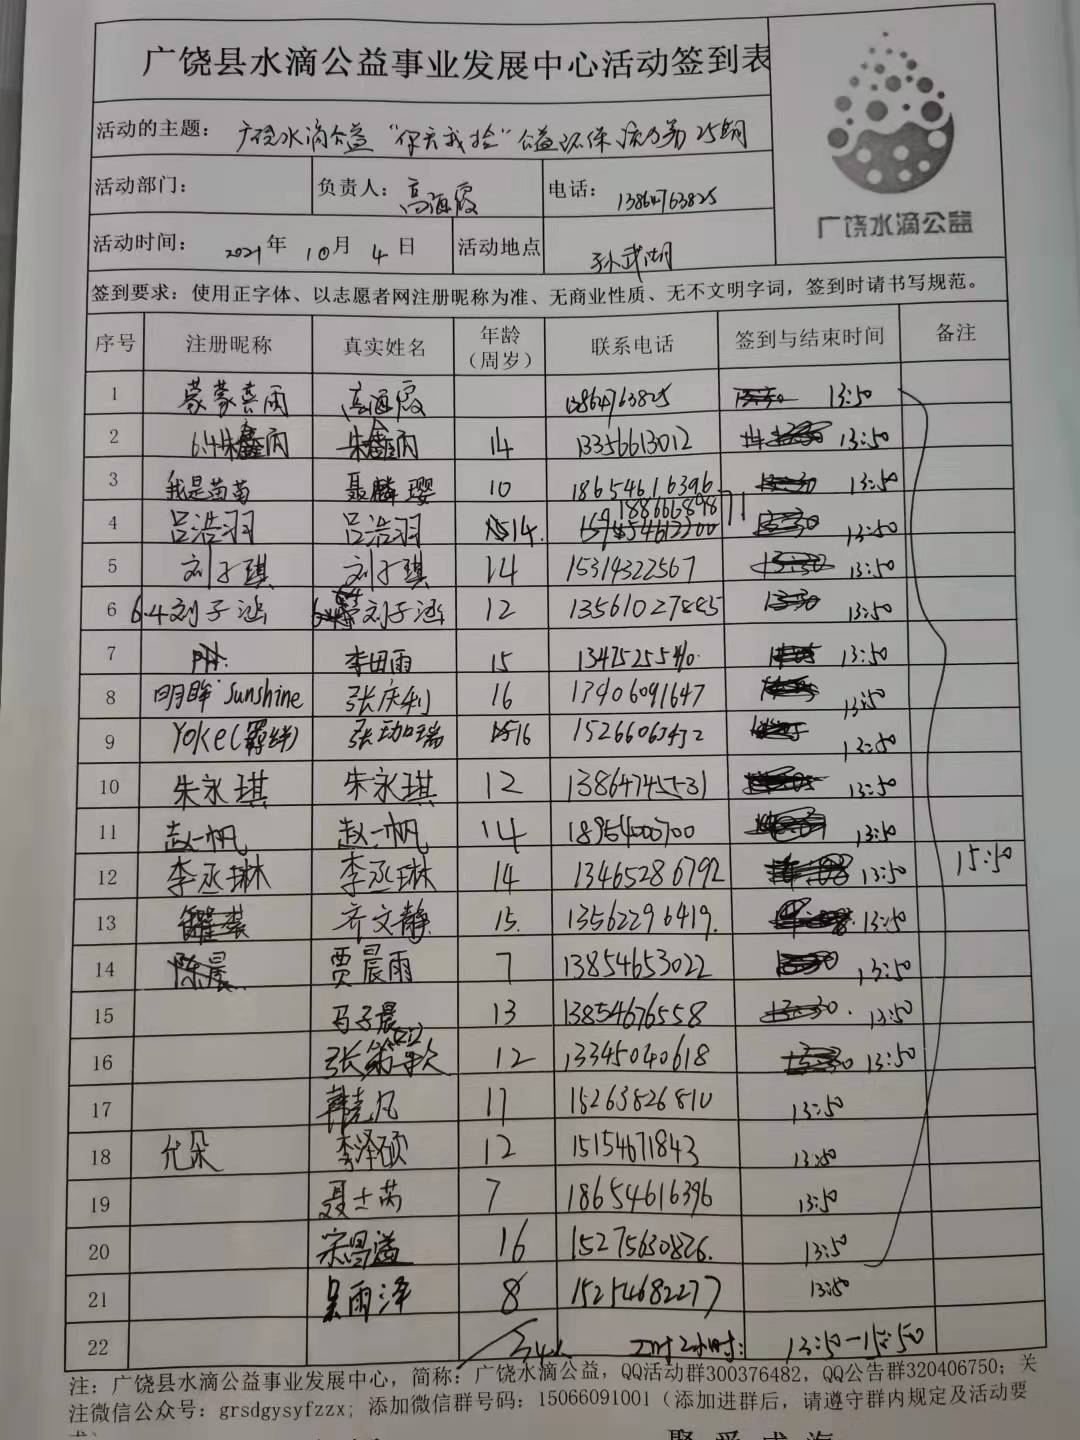 广饶县水滴公益事业发展中心活动签到表
活动的主题： 广饶水滴公益 公益环保 25期
广饶水滴公益
活动部门： 负责人：高海霞 电话：13864763825
活动时间：2021年10月4日 活动地点 孙武湖
签到要求：使用正字体、以志愿者网注册昵称为准、无商业性质、无不文明字词，签到时请书写规范。
序号 注册昵称 真实姓名 年龄（周岁） 联系电话 签到与结束时间 备注
1 蒙蒙喜雨 高海霞 13864763825 13:50
2 14 13356613012 13:50
3 我是苗苗 聂麟璎 10 18654616396 13:50
4 吕浩羽 吕浩羽 14 13:50
5 刘子琪 刘子琪 14 15314322567 13:50
6 6.4刘子涵 刘子涵 12 13561027885 13:50
7 李田雨 15 13:50
8 明眸sunshine 张庆利 16 17406091647 13:50
9 Yoke(羁绊) 张珈瑞 16 13:50
10 朱永琪 朱永琪 12 13864745531 13:50
11 赵一帆 赵一帆 14 18954000700 13:50
12 李丞琳 李丞琳 14 13465286792 13:50 15:50
13 齐文静 15 13562296419 13:50
14 贾晨雨 7 13854653022 13:50
15 马子晨 13 13854676558 13:50
16 12 13345040618 13:50
17 韩克凡 17 15263826810 13:50
18 允朵 李泽硕 12 15154671843 13:50
19 聂士芮 7 18654616396 13:50
20 宋昌溢 16 15275630826 13:50
21 吴雨泽 8 15254682277 13:50
22 2小时: 13:50-15:50
注：广饶县水滴公益事业发展中心，简称：广饶水滴公益，QQ活动群300376482，QQ公告群320406750；关
注微信公众号：grsdgysyfzzx；添加微信群号码：15066091001（添加进群后，请遵守群内规定及活动要